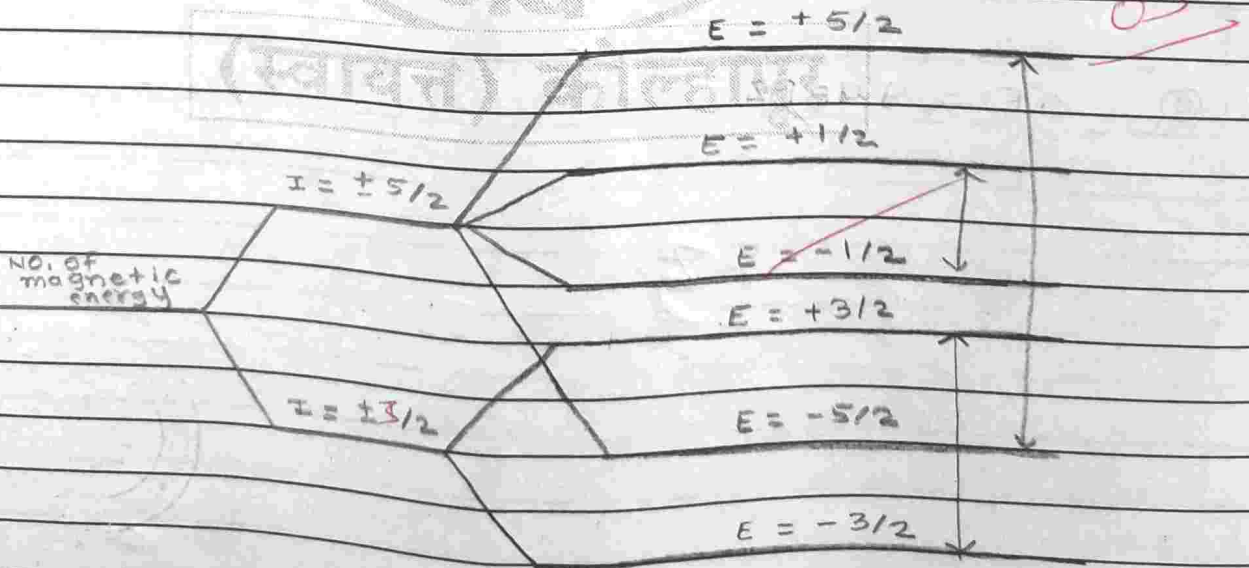 E = +5/2
(स्वायत्त) कोल्हापूर
E = +1/2
I = ±5/2
E = -1/2
NO. of
magnetic
energy
E = +3/2
I = ±3/2
E = -5/2
E = -3/2